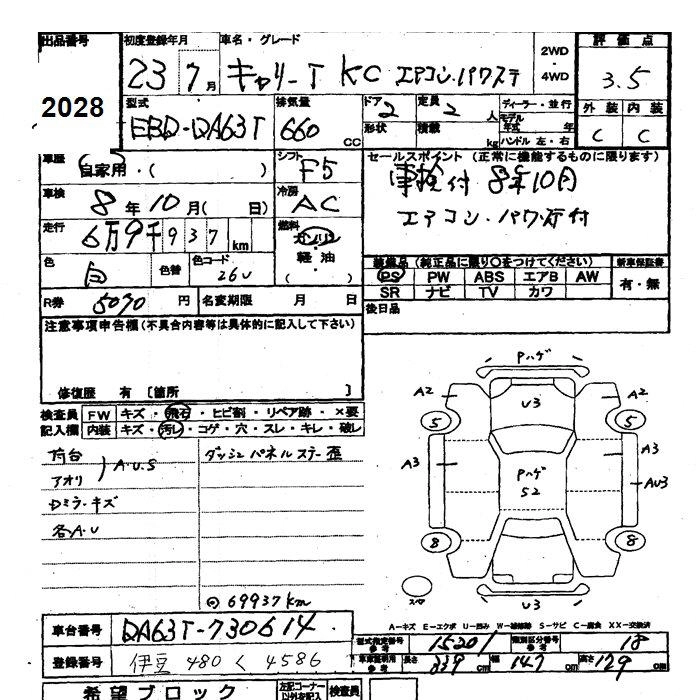 出品番号 2028
初度登録年月 23 7月
車名・グレード キャリーT KC エアコン.パワステ
2WD・4WD
評価点 3.5
外装 C 内装 C
型式 EBD-DA63T
排気量 660 CC
ドア 2 形状
定員 2 人 積載 kg
ディーラー・並行
モデル年式 年
ハンドル 左・右
車歴 自家用・( )
シフト F5
セールスポイント (正常に機能するものに限ります)
車検付 8年10月
エアコン.パワステ付
車検 8年10月( 日)
冷房 AC
走行 6万9千937km
燃料 ガソリン・軽油 ( )
色 白 色替 色コード 26U
装備品 (純正品に限り○をつけてください) 新車保証書
PS PW ABS エアB AW 有・無
SR ナビ TV カワ
R券 5070円 名変期限 月 日
後日品
注意事項申告欄 (不具合内容等は具体的に記入して下さい)
修復歴 有 [箇所 ]
検査員記入欄
FW キズ・飛石・ヒビ割・リペア跡・×要
内装 キズ・汚レ・コゲ・穴・スレ・キレ・破レ
荷台
アオリ ) A.U.S
Dミラ-キズ
各A.U
ダッシュパネルステー歪
69937km
Pハゲ
A2 U3 A2
5 5
A3 Pハゲ S2 A3 AU3
8 8
スペア U3
A-キズ E-エクボ U-凹み W-補修跡 S-サビ C-腐食 XX-交換済
車台番号 DA63T-730614
登録番号 伊豆 480 く 4586
型式指定番号 15201 類別区分番号 18
車庫証明用参考 長さ 339cm 幅 147cm 高さ 179cm
希望ブロック 左記コーナー以外を記入 検査員